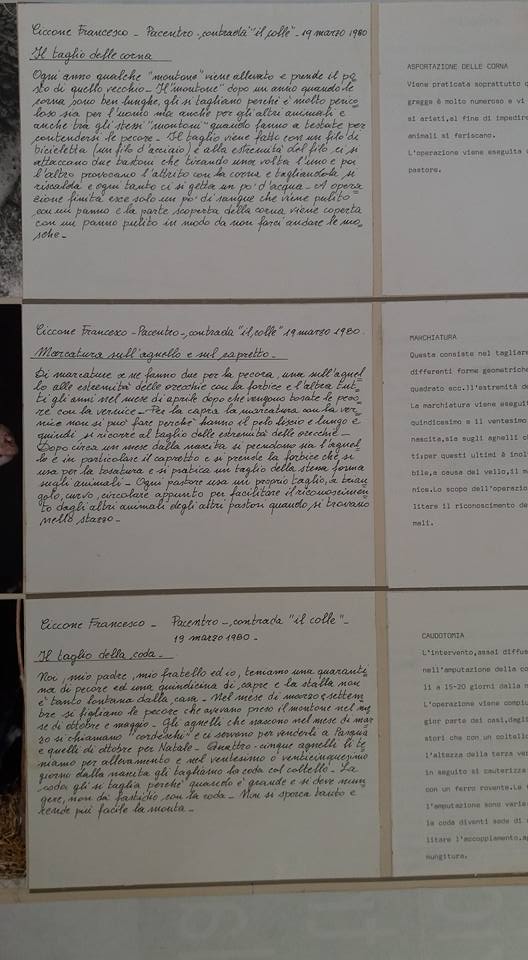 Ciccone Francesco - Pacentro -, contrada "il colle" - 19 marzo 1980
Il taglio delle corna
Ogni anno qualche "montone" viene allevato e prende il po=
sto di quello vecchio - Il "montone" dopo un anno quando le
corna sono ben lunghe, gli si tagliano perchè è molto perico=
loso sia per l'uomo ma anche per gli altri animali e
anche tra gli stessi "montoni" quando fanno a testate per
contendersi le pecore - Il taglio viene fatto con un filo di
bicicletta (un filo d'acciaio) e alla estremità del filo ci si
attaccano due bastoni che tirando una volta l'uno e poi
l'altro provocano l'attrito con la corna e tagliandola si
riscalda e ogni tanto ci si getta un po' d'acqua - A opera
zione finita esce solo un po' di sangue che viene pulito
con un panno e la parte scoperta della corna viene coperta
con un panno pulito in modo da non farci andare le mo=
sche -
ASPORTAZIONE DELLE CORNA
Viene praticata soprattutto q
gregge è molto numeroso e vi
si arieti,al fine di impedire
animali si feriscano.
L'operazione viene eseguita
pastore.
Ciccone Francesco - Pacentro -, contrada "il colle" 19 marzo 1980.
Marcatura sull'agnello e sul capretto -
Di marcature se ne fanno due per la pecora, una sull'agnel
lo alle estremità delle orecchie con la forbice e l'altra tut=
ti gli anni nel mese di aprile dopo che vengono tosate le peco=
re con la vernice - Per la capra la marcatura con la ver=
nice non si può fare perchè hanno il pelo liscio e lungo e
quindi si ricorre al taglio delle estremità delle orecchie -
Dopo circa un mese dalla nascita si prendono sia l'agnel=
lo e in particolare il capretto e si prende la forbice che si
usa per la tosatura e si pratica un taglio della stessa forma
sugli animali - Ogni pastore usa un proprio taglio, a trian
golo, curvo, circolare appunto per facilitare il riconoscimen=
to dagli altri animali degli altri pastori quando si trovano
nello stazzo -
MARCHIATURA
Questa consiste nel tagliare
differenti forme geometriche
quadrato ecc.)l'estremità de
La marchiatura viene eseguit
quindicesimo e il ventesimo
nascita,sia sugli agnelli ch
ti;per questi ultimi è inolt
bile,a causa del vello,il ma
nice.Lo scopo dell'operazio
litare il riconoscimento de
mali.
Ciccone Francesco - Pacentro -, contrada "il colle" -
19 marzo 1980 -
Il taglio della coda -
Noi, mio padre, mio fratello ed io, teniamo una quaranti
na di pecore ed una quindicina di capre e la stalla non
è tanto lontana dalla casa - Nel mese di marzo e settem
bre si figliano le pecore che avevano preso il montone nel me
se di ottobre e maggio - Gli agnelli che nascono nel mese di mar
zo si chiamano "cordeschi" e ci servono per venderli a Pasqua
e quelli di ottobre per Natale - Quattro-cinque agnelli li te
niamo per allevamento e nel ventesimo o venticinquesimo
giorno dalla nascita gli tagliamo la coda col coltello - La
coda gli si taglia perchè quando è grande e si deve mun
gere, non dà fastidio con la coda - Non si sporca tanto e
rende più facile la monta -
CAUDOTOMIA
L'intervento,assai diffus
nell'amputazione della co
li a 15-20 giorni dalla n
L'operazione viene compiu
gior parte dei casi,dagli
stori che con un coltello
l'altezza della terza ver
in seguito si cauterizza
con un ferro rovente.Le
l'amputazione sono varie
la coda diventi sede di
litare l'accoppiamento,ag
mungitura.